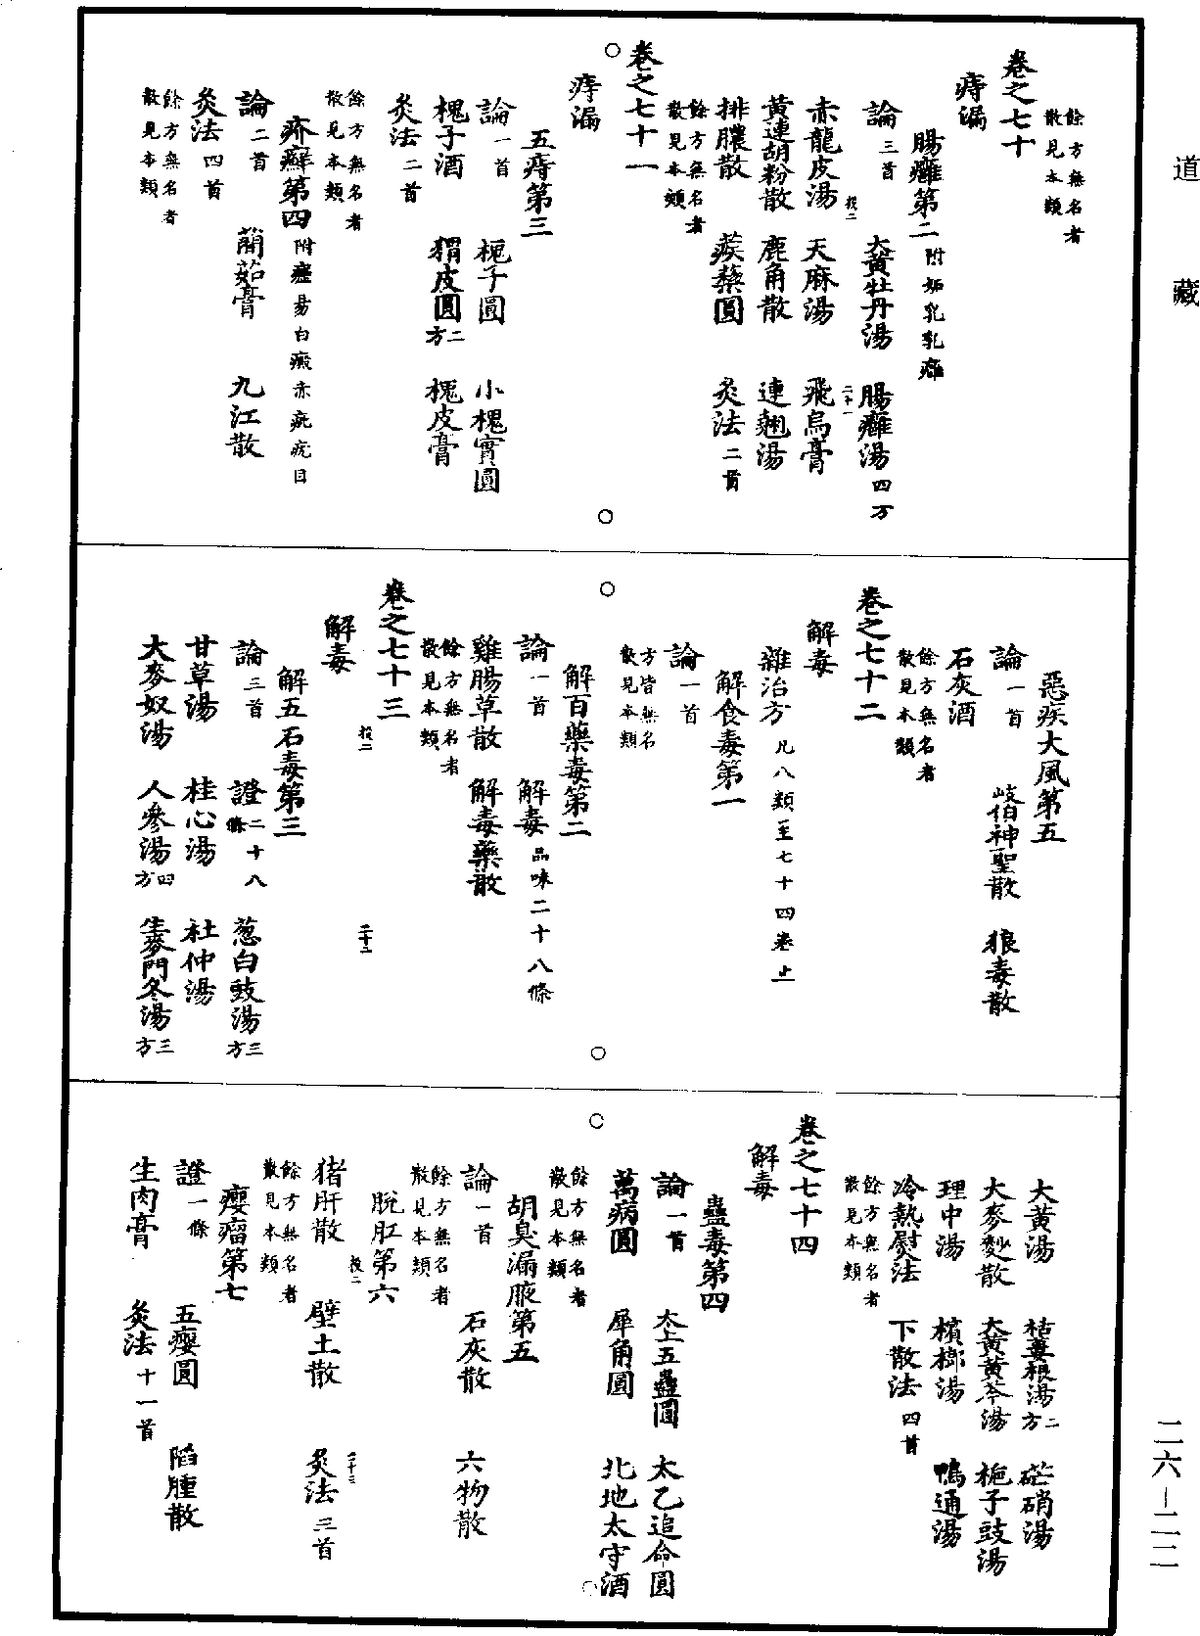 道藏
餘方無名者
散見本類
卷之七十
痔漏
腸癰第二 附妬乳乳癰
論三首 大黃牡丹湯 腸癰湯四方
投二 二十一
赤龍皮湯 天麻湯 飛烏膏
黃連胡粉散 鹿角散 連翹湯
排膿散 蒺藜圓 灸法二首
餘方無名者
散見本類
卷之七十一
痔漏
五痔第三
論一首 槐子圓 小槐實圓
槐子酒 猬皮圓二方 槐皮膏
灸法二首
餘方無名者
散見本類
疥癬第四 附癧易白癜赤疵疣目
論二首 䕡茹膏 九江散
灸法四首
餘方無名者
散見本類
惡疾大風第五
論一首 岐伯神聖散 狼毒散
石灰酒
餘方無名者
散見本類
卷之七十二
解毒
雜治方 凡八類至七十四卷止
解食毒第一
論一首
方皆無名
散見本類
解百藥毒第二
論一首 解毒品味二十八條
雞腸草散 解毒藥散
餘方無名者
散見本類
卷之七十三
投二 二十二
解毒
解五石毒第三
論三首 證二十八條 葱白豉湯三方
甘草湯 桂心湯 杜仲湯
大麥奴湯 人參湯四方 生麥門冬湯三方
大黃湯 栝蔞根湯二方 芒硝湯
大麥麨散 大黃黃芩湯 梔子豉湯
理中湯 檳榔湯 鴨通湯
冷熱熨法 下散法四首
餘方無名者
散見本類
卷之七十四
解毒
蠱毒第四
論一首 太上五蠱圓 太乙追命圓
萬病圓 犀角圓 北地太守酒
餘方無名者
散見本類
胡臭漏腋第五
論一首 石灰散 六物散
餘方無名者
散見本類
脫肛第六
投二 二十三
猪肝散 壁土散 灸法三首
餘方無名者
散見本類
癭瘤第七
證一條 五癭圓 陷腫散
生肉膏 灸法十一首
二六－二二